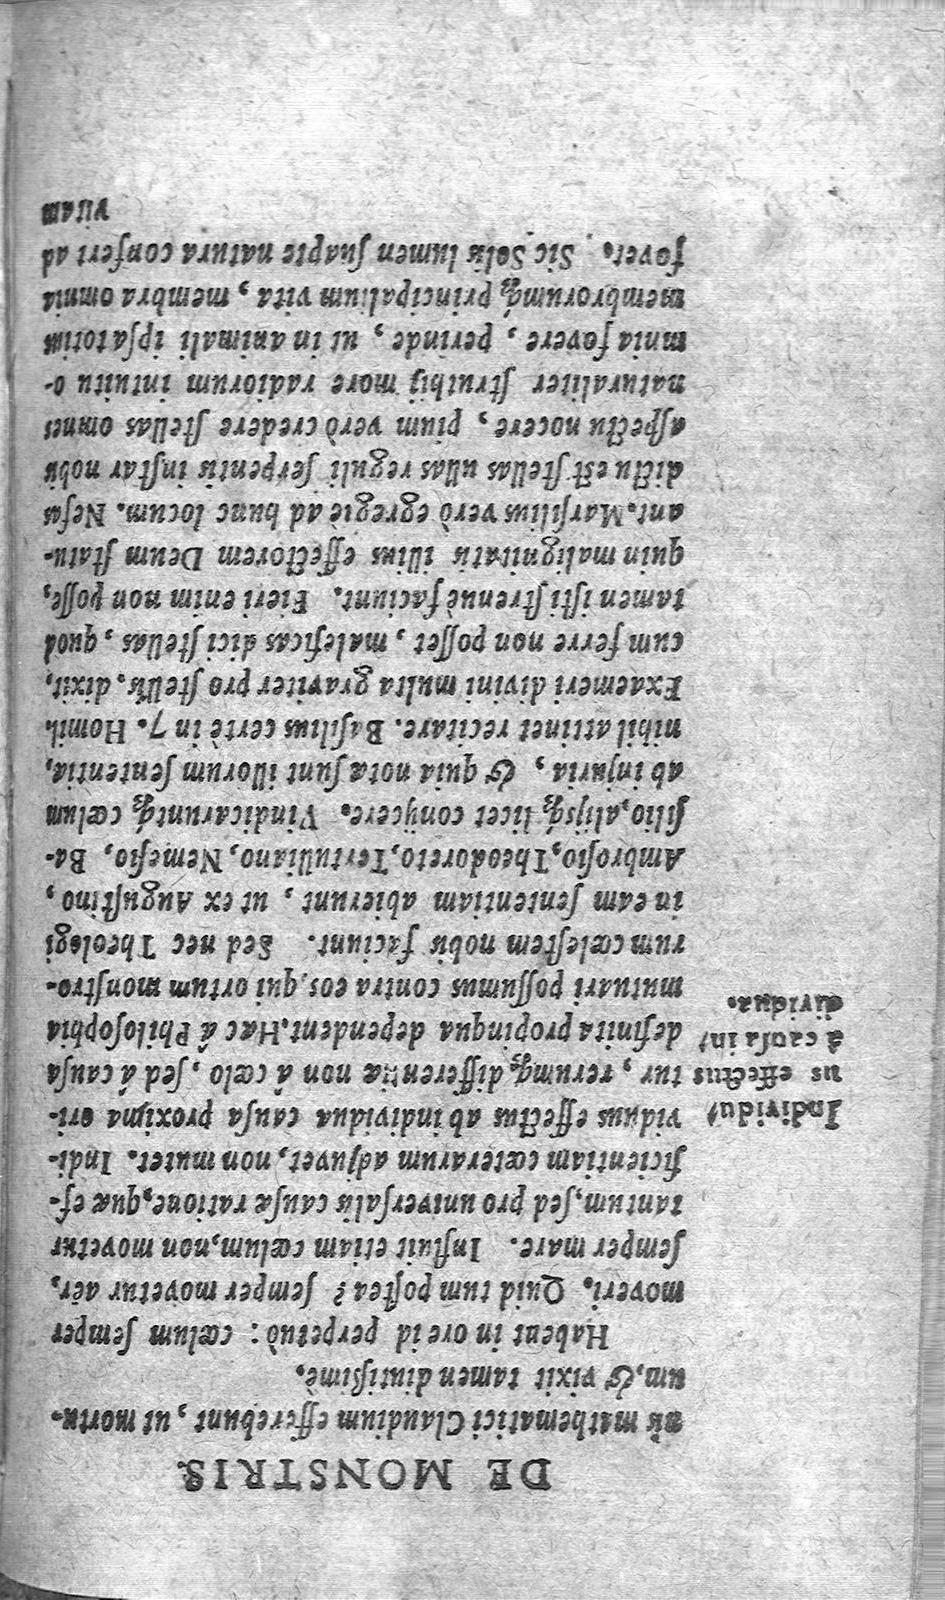 DE MONSTRIS.
nis mathematici Claudium efferebunt, ut mortu-
um, & vixit tamen diutißimè.
Habent in ore id perpetuò: cœlum semper
moveri. Quid tum postea? semper movetur aër,
semper mare. Influit etiam cœlum, non movetur
tantum, sed pro universalis causæ ratione, quæ ef-
ficientiam cæterarum adjuvet, non mutet. Indi-
viduus effectus ab individua causa proxima ori-
tur, rerumq́; differentiæ non á cœlo, sed á causa
definita propinqua dependent. Hæc á Philosophia
mutuari possumus contra eos, qui ortum monstro-
rum cœlestem nobis faciunt. Sed nec Theologi
in eam sententiam abierunt, ut ex Augustino,
Ambrosio, Theodoreto, Tertulliano, Nemesio, Ba-
silio, alijsq́; licet conijcere. Vindicaruntq́; cœlum
ab injuria, & quia nota sunt illorum sententia,
nihil attinet recitare. Basilius certè in 7. Homil.
Exaemeri divini multa graviter pro stellis. dixit,
cum ferre non posset, maleficas dici stellas, quod
tamen isti strenuè faciunt. Fieri enim non posse,
quin malignitatis illius effectorem Deum statu-
ant. Marsilius verò egregie ad hunc locum. Nefas
dictu est stellas ullas reguli serpentis instar nobis
aspectu nocere, pium verò credere stellas omnes
naturaliter struthij more radiorum intuitu o-
mnia fovere, perinde, ut in animali ipsa totius
membrorumq́; principalium vita, membra omnia
fovet. Sic Solis lumen suapte natura confert ad
vitam
Individu/
us effectus
á causa in/
dividua.